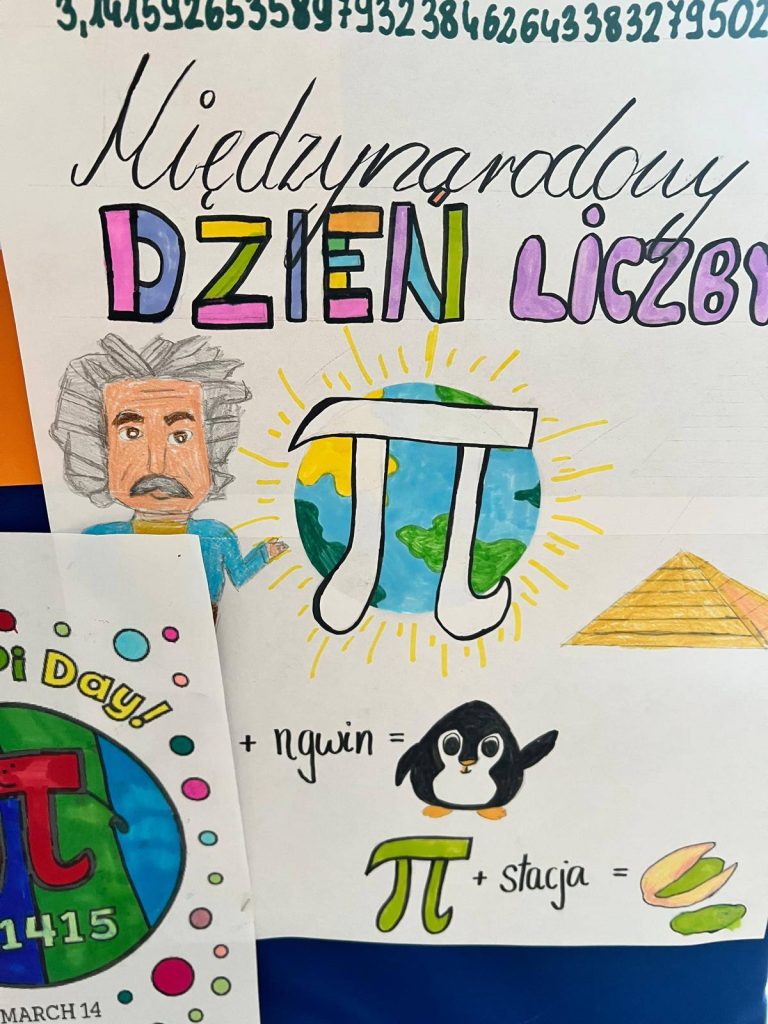 3,141592653589793238462643383279502
Międzynarodowy
DZIEŃ LICZBY
π
+ ngwin =
π + stacja =
Pi Day!
π
1415
MARCH 14